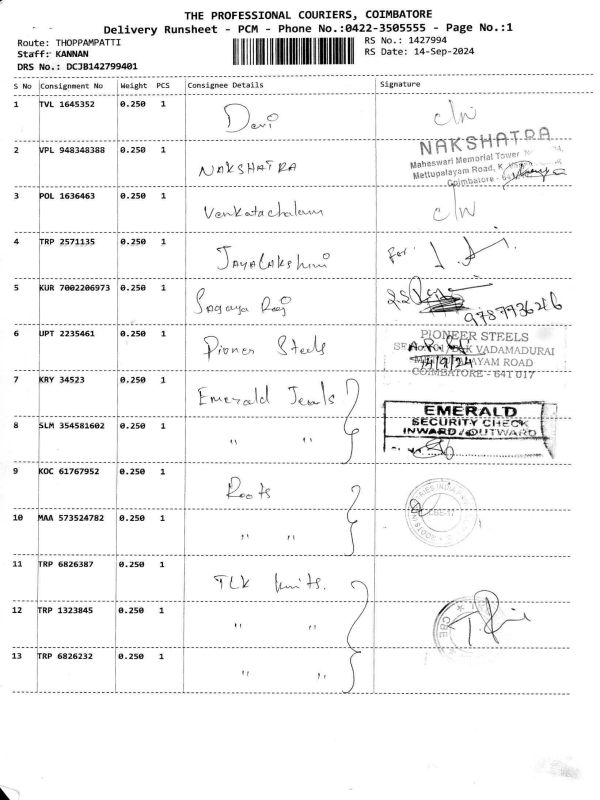 THE PROFESSIONAL COURIERS, COIMBATORE
Delivery Runsheet - PCM - Phone No.:0422-3505555 - Page No.:1
Route: THOPPAMPATTI RS No.: 1427994
Staff: KANNAN RS Date: 14-Sep-2024
DRS No.: DCJB142799401
S No Consignment No Weight PCS Consignee Details Signature
1 TVL 1645352 0.250 1 Devi c/w
2 VPL 948348388 0.250 1 NAKSHATRA
NAKSHATRA
Maheswari Memorial Tower
Mettupalayam Road,
Coimbatore - 641
3 POL 1636463 0.250 1 Venkatachalam c/w
4 TRP 2571135 0.250 1 JAYALAKshmi For
5 KUR 7002206973 0.250 1 Sagaya Raoj 9787736216
6 UPT 2235461 0.250 1 Pioner Steels
PIONEER STEELS
VADAMADURAI
14/9/24 AYAM ROAD
COIMBATORE - 641 017
7 KRY 34523 0.250 1 Emerald Jewels
8 SLM 354581602 0.250 1 " "
EMERALD
SECURITY CHECK
INWARD / OUTWARD
9 KOC 61767952 0.250 1 Roots
10 MAA 573524782 0.250 1 " "
CBE-17
11 TRP 6826387 0.250 1 TLK knits.
12 TRP 1323845 0.250 1 " "
CBE
13 TRP 6826232 0.250 1 " "